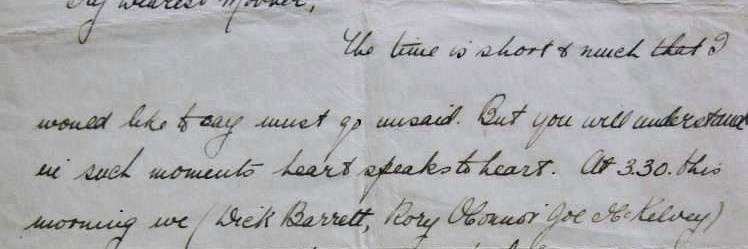 My dearest Mother,
The time is short & much that I
would like to say must go unsaid. But you will understand
in such moments heart speaks to heart. At 3.30. this
morning we (Dick Barrett, Rory O'Connor Joe McKelvey)